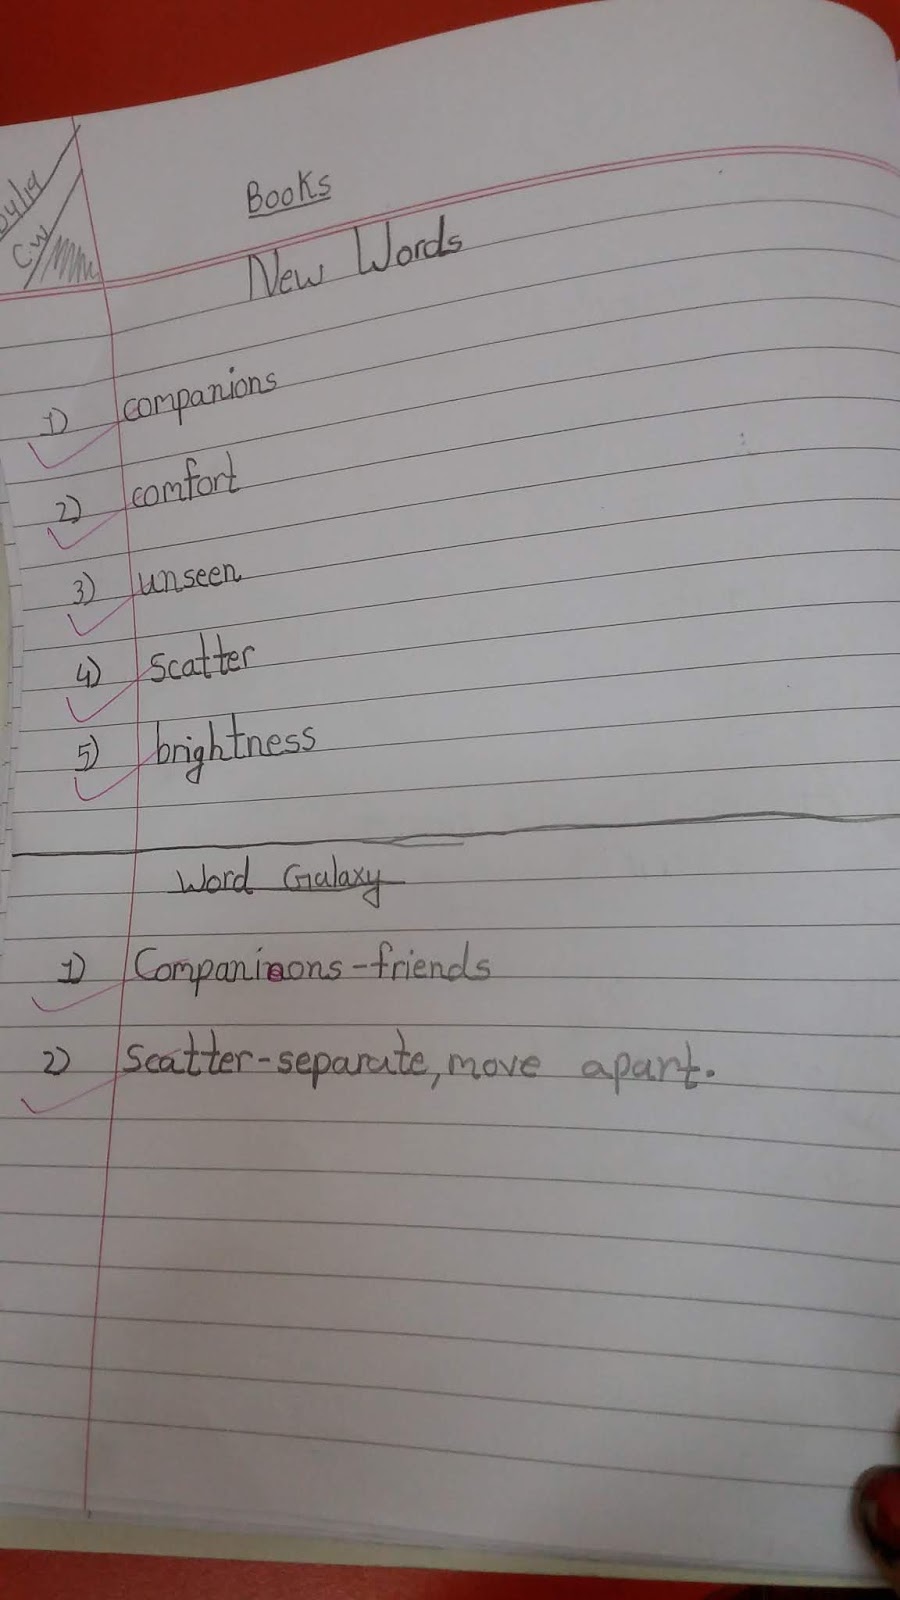 04/19
CW
Books
New Words
1) companions
2) comfort
3) unseen
4) scatter
5) brightness
Word Galaxy
1) Companions-friends
2) Scatter-separate, move apart.